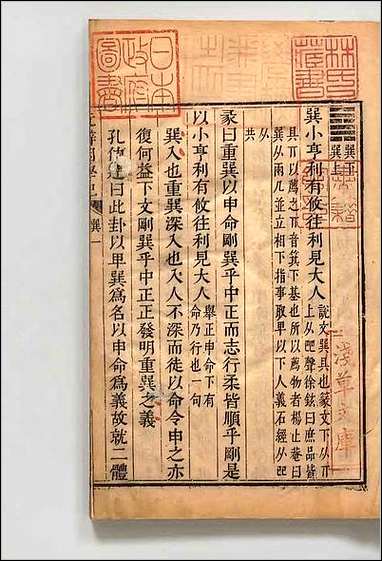 林氏藏書
日本政府圖書
淺草文庫
巽下
巽上
巽小亨利有攸往利見大人
說文巽具也篆文下从丌
上从㔾聲徐鉉曰庶品皆
具丌以薦之丌音箕下基也所以薦物者楊止菴曰
巽从兩㔾並立相上下指事取早以下人義石經㔾
从
共
彖曰重巽以申命剛巽乎中正而志行柔皆順乎剛是
以小亨利有攸往利見大人
舉正申命下有
命乃行也一句
巽入也重巽深入也入人不深而徒以命令申之亦
復何益下文剛巽乎中正正發明重巽之義
孔達曰此卦以卑巽為名以申命為義故就二體
巽一